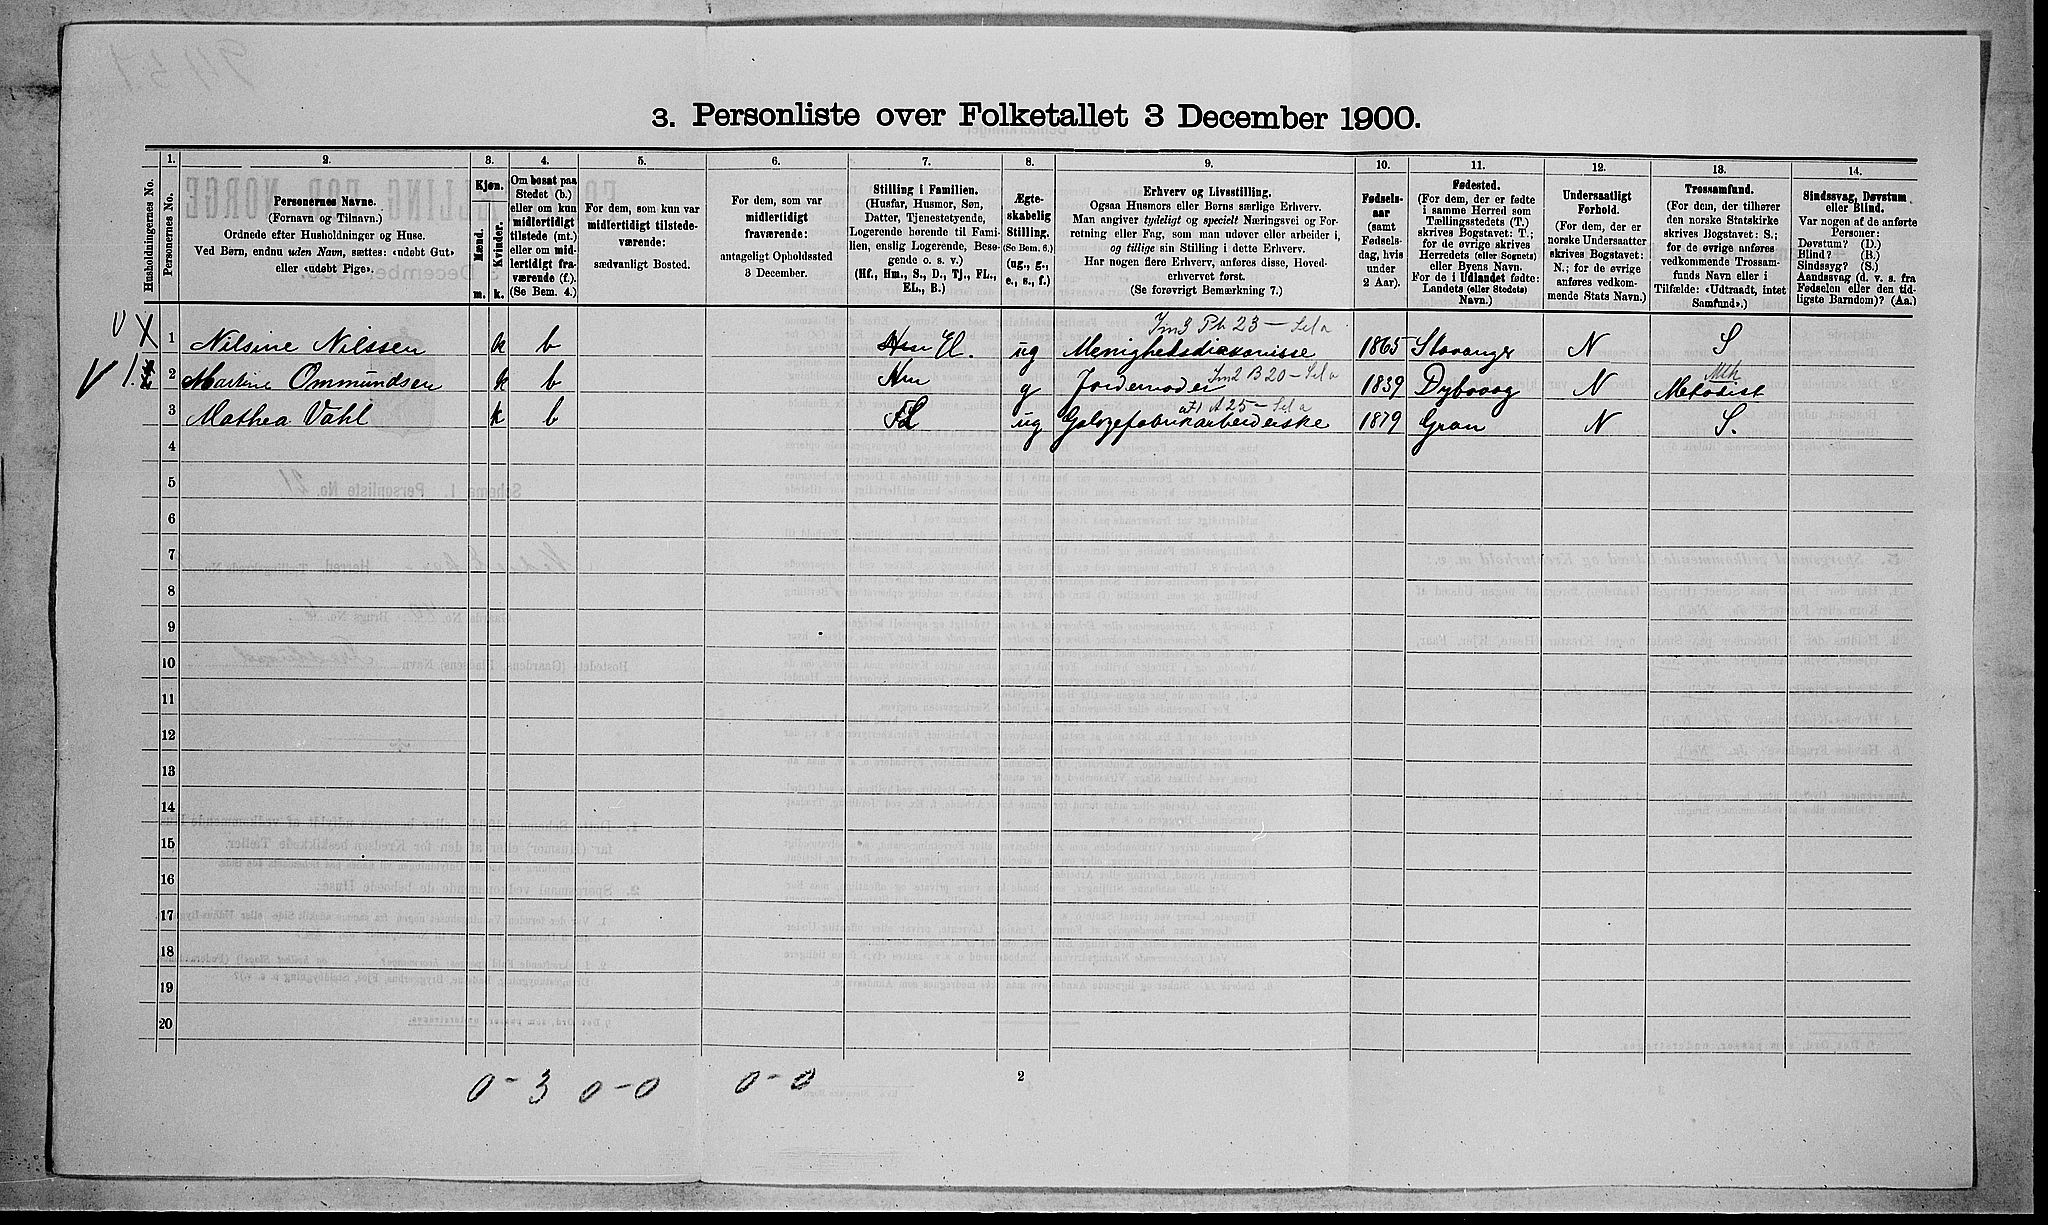 3. Personliste over Folketallet 3 December 1900.
Husholdningernes No.
1. Personernes No.
2. Personernes Navne. (Fornavn og Tilnavn.) Ordnede efter Husholdninger og Huse. Ved Børn, endnu uden Navn, sættes: «udøbt Gut» eller «udøbt Pige».
3. Kjøn. Mænd. m. Kvinder. k.
4. Om bosat paa Stedet (b.) eller om kun midlertidigt tilstede (mt.) eller om midlertidigt fraværende (f.). (Se Bem. 4.)
5. For dem, som kun var midlertidigt tilstedeværende: sædvanligt Bosted.
6. For dem, som var midlertidigt fraværende: antageligt Opholdssted 3 December.
7. Stilling i Familien. (Husfar, Husmor, Søn, Datter, Tjenestetyende, Logerende hørende til Familien, enslig Logerende, Besøgende o. s. v.) (Hf., Hm., S., D., Tj., FL., EL., B.)
8. Ægteskabelig Stilling. (Se Bem. 6.) (ug., g., e., s., f.)
9. Erhverv og Livsstilling. Ogsaa Husmors eller Børns særlige Erhverv. Man angiver tydeligt og specielt Næringsvei og Forretning eller Fag, som man udøver eller arbeider i, og tillige sin Stilling i dette Erhverv. Har nogen flere Erhverv, anføres disse, Hovederhvervet først. (Se forøvrigt Bemærkning 7.)
10. Fødselsaar (samt Fødselsdag, hvis under 2 Aar).
11. Fødested. (For dem, der er fødte i samme Herred som Tællingsstedets (T.) skrives Bogstavet: T.; for de øvrige skrives Herredets (eller Sognets) eller Byens Navn. For de i Udlandet fødte: Landets (eller Stedets) Navn.)
12. Undersaatligt Forhold. (For dem, der er norske Undersaatter skrives Bogstavet: N.; for de øvrige anføres vedkommende Stats Navn.)
13. Trossamfund. (For dem, der tilhører den norske Statskirke skrives Bogstavet: S.; for de øvrige anføres vedkommende Trossamfunds Navn eller i Tilfælde: «Udtraadt, intet Samfund».)
14. Sindssvag, Døvstum eller Blind. Var nogen af de anførte Personer: Døvstum? (D.) Blind? (B.) Sindssyg? (S.) Aandssvag (d. v. s. fra Fødselen eller den tidligste Barndom)? (Aa.)
1 Nilsine Nilssen k b El. ug Menighedsdiakonisse 1865 Stavanger N S
2 Martine Ommundsen k b Hm g Jordemoder 1839 Dybvaag N Metodist
3 Mathea Vahl k b FL ug Galogefabrikarbeiderske 1879 Gran N S.
4
5
6
7
8
9
10
11
12
13
14
15
16
17
18
19
20
0 - 3 0 - 0 0 - 0
2